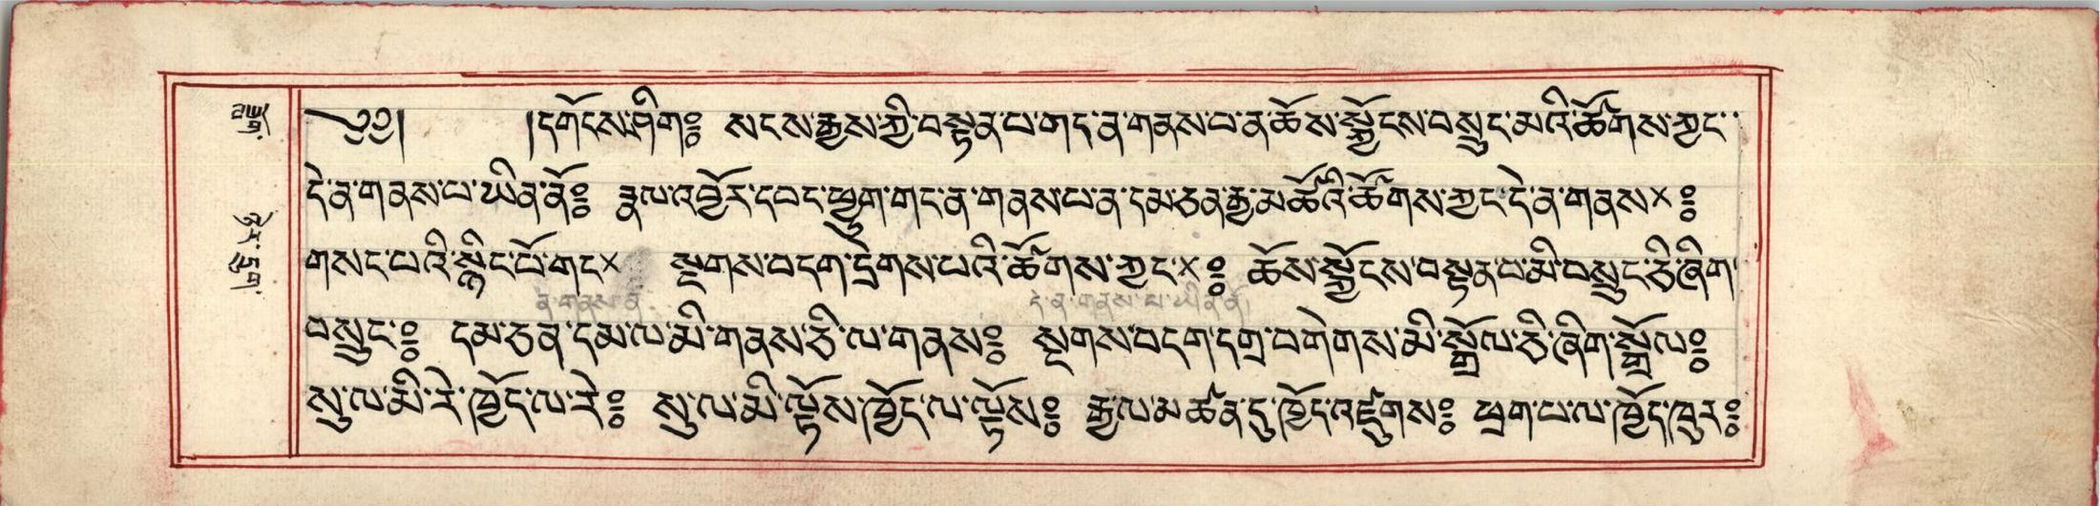 ༄༅། །དགོངས་ཤིག༔ སངས་རྒྱས་ཀྱི་བསྟན་པ་གད་ན་གནས་པ་ན་ཆོས་སྐྱོངས་བསྲུང་མའི་ཚོགས་ཀྱང་
དེ་ན་གནས་པ་ཡིན་ནོ༔ རྣལ་འབྱོར་དབང་ཕྱུག་གང་ན་གནས་པ་ན་དམ་ཅན་རྒྱ་མཚོའི་ཚོགས་ཀྱང་དེ་ན་གནས×༔
གསང་བའི་སྙིང་པོ་གང× སྔགས་བདག་དྲེགས་པའི་ཚོགས་ཀྱང་×༔ ཆོས་སྐྱོངས་བསྟན་པ་མི་བསྲུང་ཅི་ཞིག་
ན་གནས་ན་ དེ་ན་གནས་པ་ཡིན་ནོ
བསྲུང་༔ དམ་ཅན་དམ་ལ་མི་གནས་ཅི་ལ་གནས༔ སྔགས་བདག་དགྲ་བགེགས་མི་སྒྲོལ་ཅི་ཞིག་སྒྲོལ༔
སུ་ལ་མི་རེ་ཁྱོད་ལ་རེ༔ སུ་ལ་མི་ལྟོས་ཁྱོད་ལ་ལྟོས༔ རྒྱལ་མཚན་དུ་ཁྱོད་འཛུགས༔ ཕྲག་པ་ལ་ཁྱོད་ཁུར༔